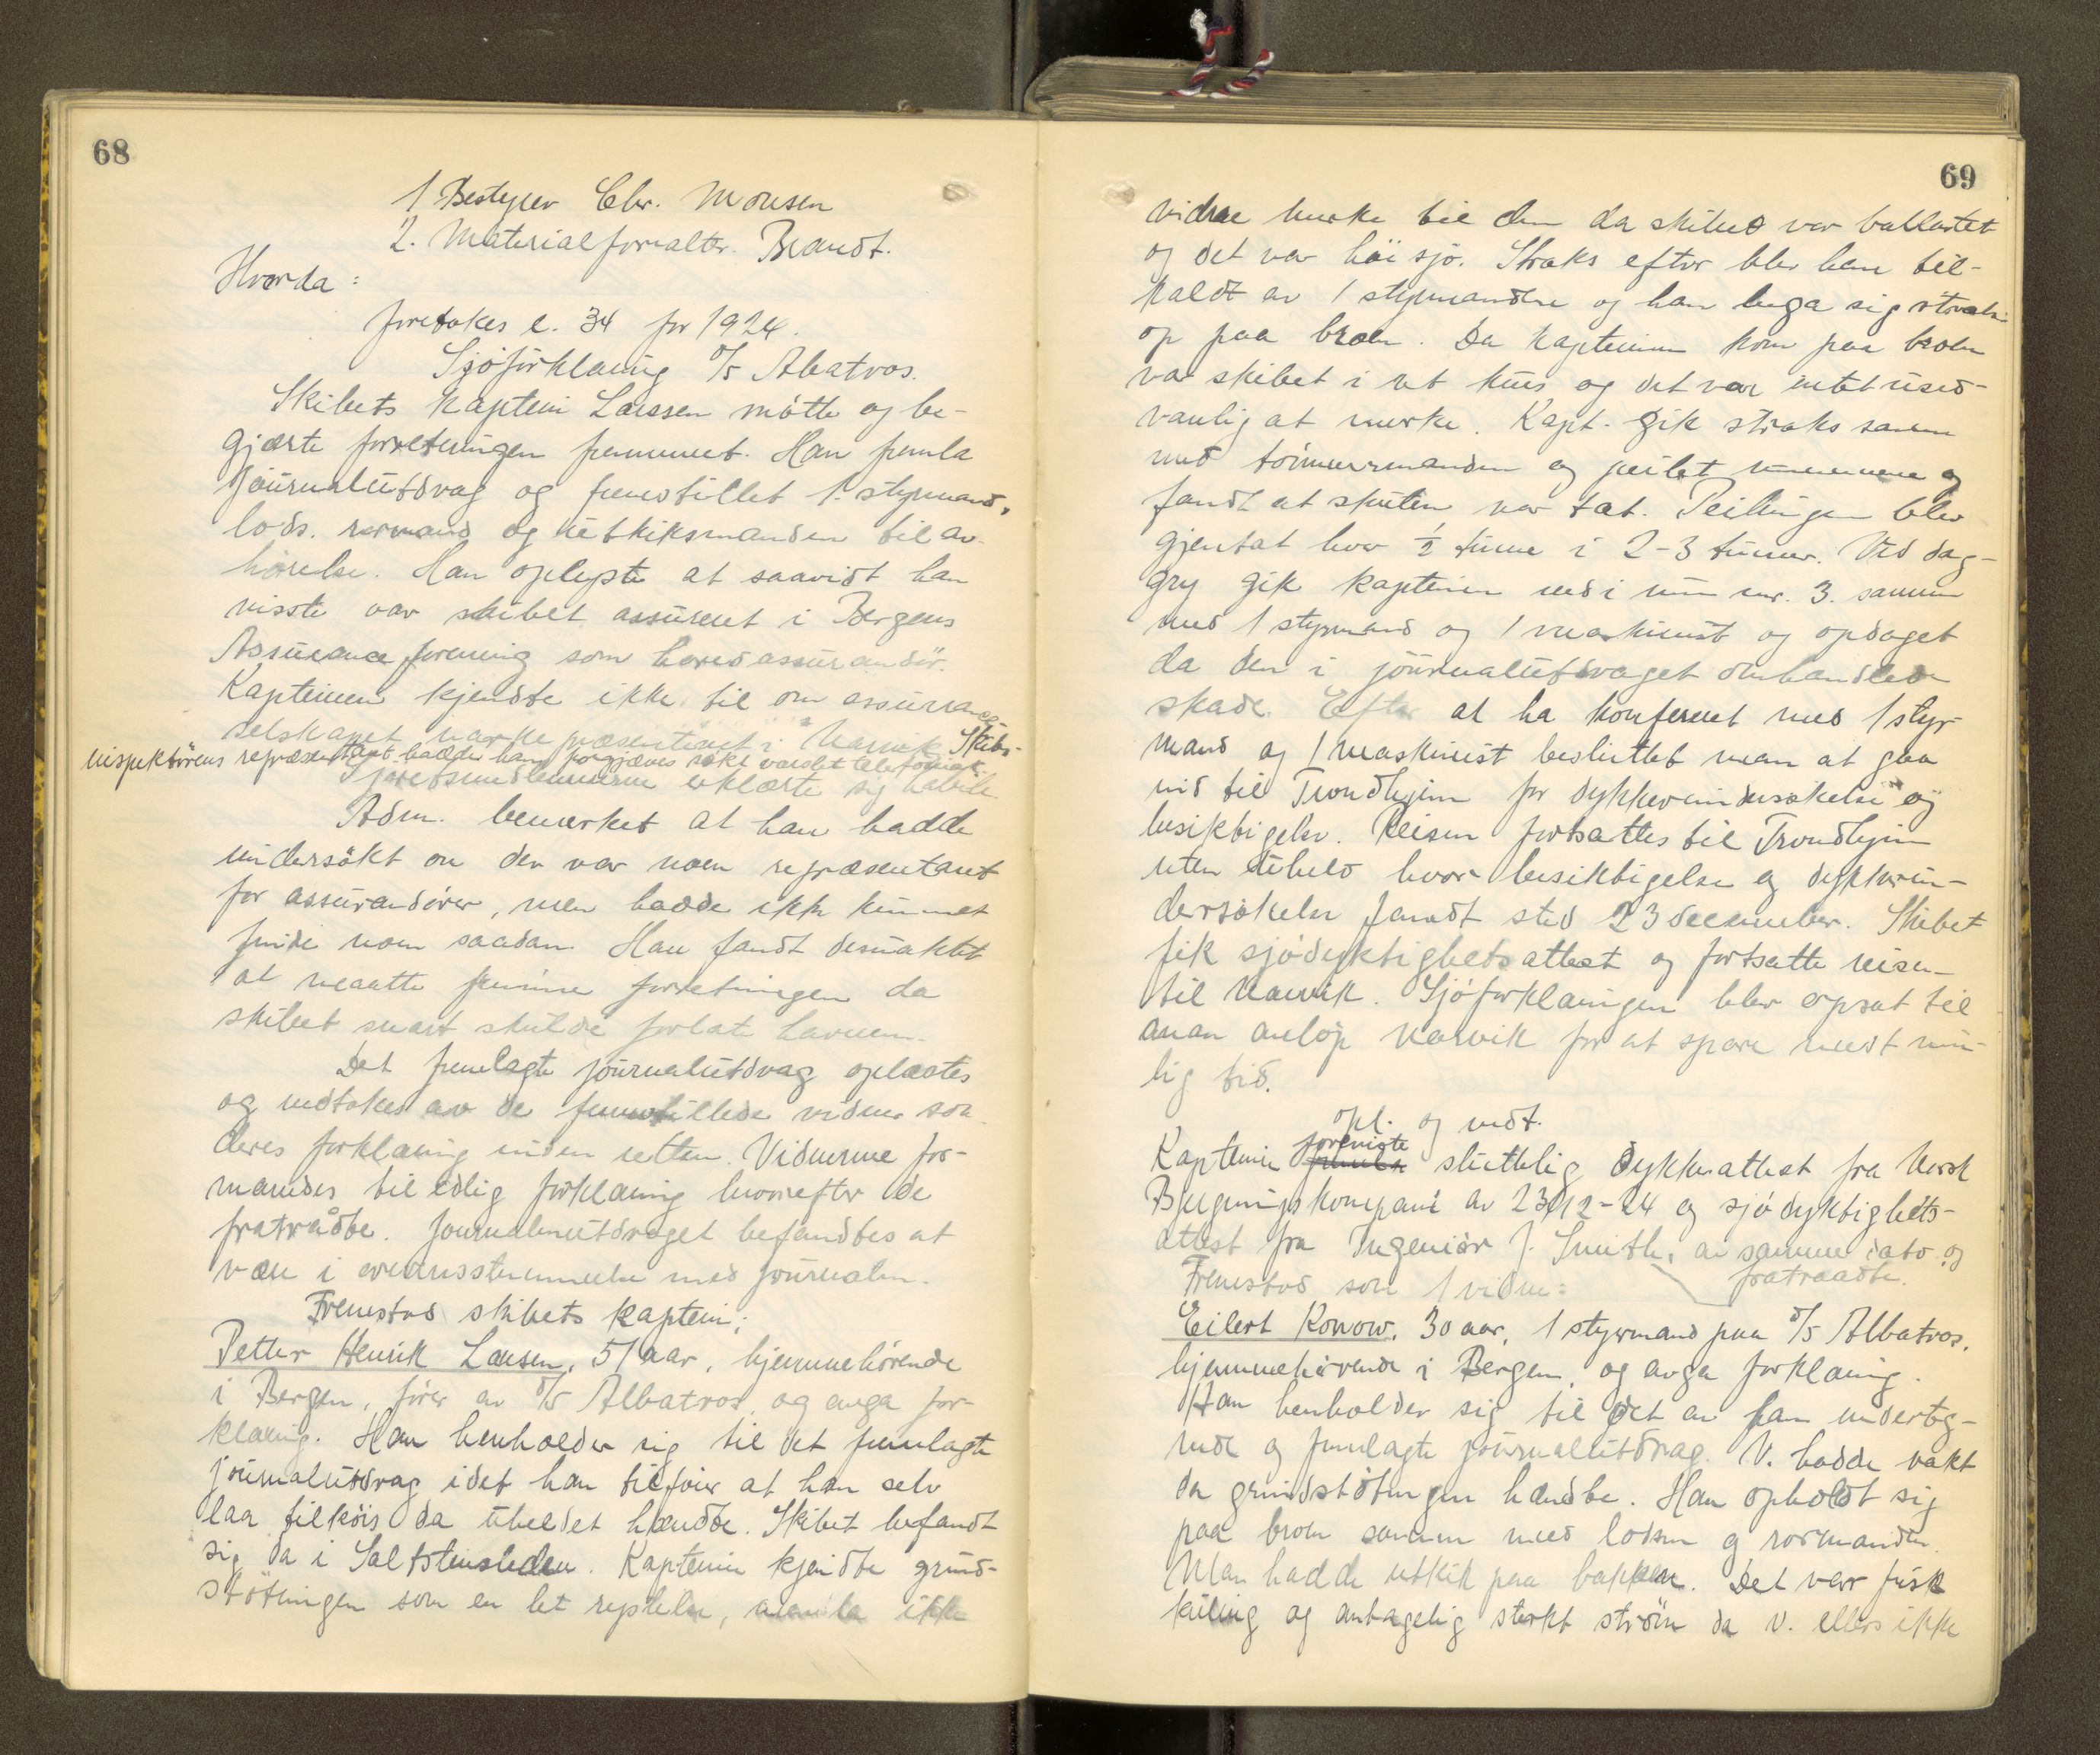 68
1 Bestyrer Chr. Monsen
2. Materialforvalter Brandt.
Hvorda:
foretokes l. 34 for 1924.
Sjöforklaring D/S Albatros.
Skibets kaptein Larssen mötte og be-
gjærte forretningen fremmet. Han fremla
journalutdrag og fremstillet 1. styrmand,
lods. rormand og utkiksmanden til av-
hörelse. Han oplyste at saavidt han
visste var skibet assurert i Bergens
Assuranceforening som hovedassurandör.
Kapteinen kjendte ikke til om assurance-
selskapet var repræsentert i Narvik. Skibs-
inspektörens repræsentant hadde han forgjæves sökt varslet telefonisk.
Sjöretsmedlemmerne erklærte sig habile.
Adm. bemerket at han hadde
undersökt om der var noen repræsentant
for assurandörer, men hadde ikke kunnet
finde noen saadan. Han fandt desuaktet
at maatte fremme forretningen da
skibet snart skulde forlate havnen.
Det fremlagte journalutdrag oplæstes
og vedtokes av de fremstillede vidner som
deres forklaring inden retten. Vidnerne for-
mandes til edlig forklaring hvorefter de
fratrådte. Journalenutdraget befandtes at
være i overensstemmelse med journalen.
Fremstod skibets kaptein:
Petter Henrik Larsen, 51 aar, hjemmehörende
i Bergen, förer av D/S Albatros og avga for-
klaring. Han henholder sig til det fremlagte
journalutdrag idet han tilföier at han selv
laa tilköis da uheldet hændte. Skibet befandt
sig da i Saltsteinsleden. Kapteinen kjendte grund-
stötningen som en let rystelse, men la ikke
69
videre merke til den da skibet var ballastet
og det var höi sjö. Straks efter blev han til-
kaldt av 1 styrmanden og han bega sig straks
op paa broen. Da kapteinen kom paa broen
var skibet i ret kurs og det var intet used-
vanlig at merke. Kapt. gik straks sammen
med tömmermanden og peilet rummene og
fandt at skuten var tæt. Peilingen blev
gjentat hver ½ time i 2-3 timer. Ved dag-
gry gik kapteinen ned i rum nr. 3. sammen
med 1 styrmand og 1 maskinist og opdaget
da den i journalutdraget omhandlede
skade. Efter at ha konferert med 1 styr-
mand og 1 maskinist besluttet man at gaa
ind til Trondhjem for dykkerundersökelse og
besiktigelse. Reisen fortsattes til Trondhjem
uten uheld hvor besiktigelse og dykkerun-
dersökelse fandt sted 23 december. Skibet
fik sjödyktighetsattest og fortsatte reisen
til Narvik. Sjöforklaringen blev opsat til
man anlöp Narvik for at spare mest mu-
lig tid.
opl. og vedt.
Kapteinen foreviste sluttelig dykkerattest fra Norsk
Bjergningskompani av 23/12-24 og sjödyktighets-
attest fra Ingeniör J. Smith, av samme dato. og
fratraadte.
Fremstod som 1 vidne:
Eilert Konow. 30 aar, 1 styrmand paa D/S Albatros,
hjemmehörende i Bergen, og avga forklaring.
Han henholder sig til det av ham underteg-
nede og fremlagte journalutdrag. V. hadde vakt
da grundstötningen hændte. Han opholdt sig
paa broen sammen med losen og rormanden.
Man hadde utkik paa bakken. Det var frisk
kuling og antagelig sterkt ström da V. ellers ikke